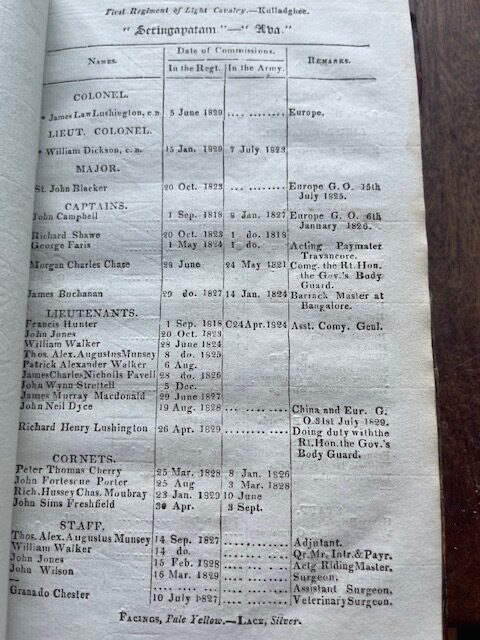 First Regiment of Light Cavalry.—Kulladghee.
"Seringapatam"—"Ava."
Names. Date of Commissions. Remarks.
In the Regt. In the Army.
COLONEL.
* James Law Lushington, C.B. 5 June 1829 .... ........ Europe.
LIEUT. COLONEL.
* William Dickson, C.B. 15 Jan. 1829 7 July 1823
MAJOR.
St. John Blacker 20 Oct. 1823 ... ........ Europe G. O. 15th
July 1825.
CAPTAINS.
John Campbell 1 Sep. 1818 8 Jan. 1827 Europe G. O. 6th
January 1826.
Richard Shawe 20 Oct. 1823 1 do. 1818
George Faris 1 May 1824 1 do. Acting Paymater
Travancore.
Morgan Charles Chase 28 June 24 May 1821 Comg. the Rt. Hon.
the Gov.'s Body
Guard.
James Buchanan 29 do. 1827 14 Jan. 1824 Barrack Master at
Bangalore.
LIEUTENANTS.
Francis Hunter 1 Sep. 1818 C24 Apr. 1824 Asst. Comy. Genl.
John Jones 20 Oct. 1823
William Walker 28 June 1824
Thos. Alex. Augustus Munsey 8 do. 1825
Patrick Alexander Walker 6 Aug.
James Charles Nicholls Favell 28 do. 1826
John Wynn Strettell 5 Dec.
James Murray Macdonald 29 June 1827
John Neil Dyce 19 Aug. 1828 ... ........ China and Eur. G.
O. 31st July 1829.
Richard Henry Lushington 26 Apr. 1829 ............ Doing duty with the
Rt. Hon. the Gov.'s
Body Guard.
CORNETS.
Peter Thomas Cherry 25 Mar. 1828 8 Jan. 1826
John Fortescue Porter 25 Aug 3 Mar. 1828
Rich. Hussey Chas. Moubray 23 Jan. 1829 10 June
John Sims Freshfield 30 Apr. 3 Sept.
STAFF.
Thos. Alex. Augustus Munsey 14 Sep. 1827 ............ Adjutant.
William Walker 14 do. ............ Qr. Mr. Intr. & Payr.
John Jones 15 Feb. 1828 ............ Actg Riding Master.
John Wilson 16 Mar. 1829 ............ Surgeon.
— ... ........ ............ Assistant Surgeon.
Granado Chester 10 July 1827 ............ Veterinary Surgeon.
Facings, Pale Yellow.—Lace, Silver.